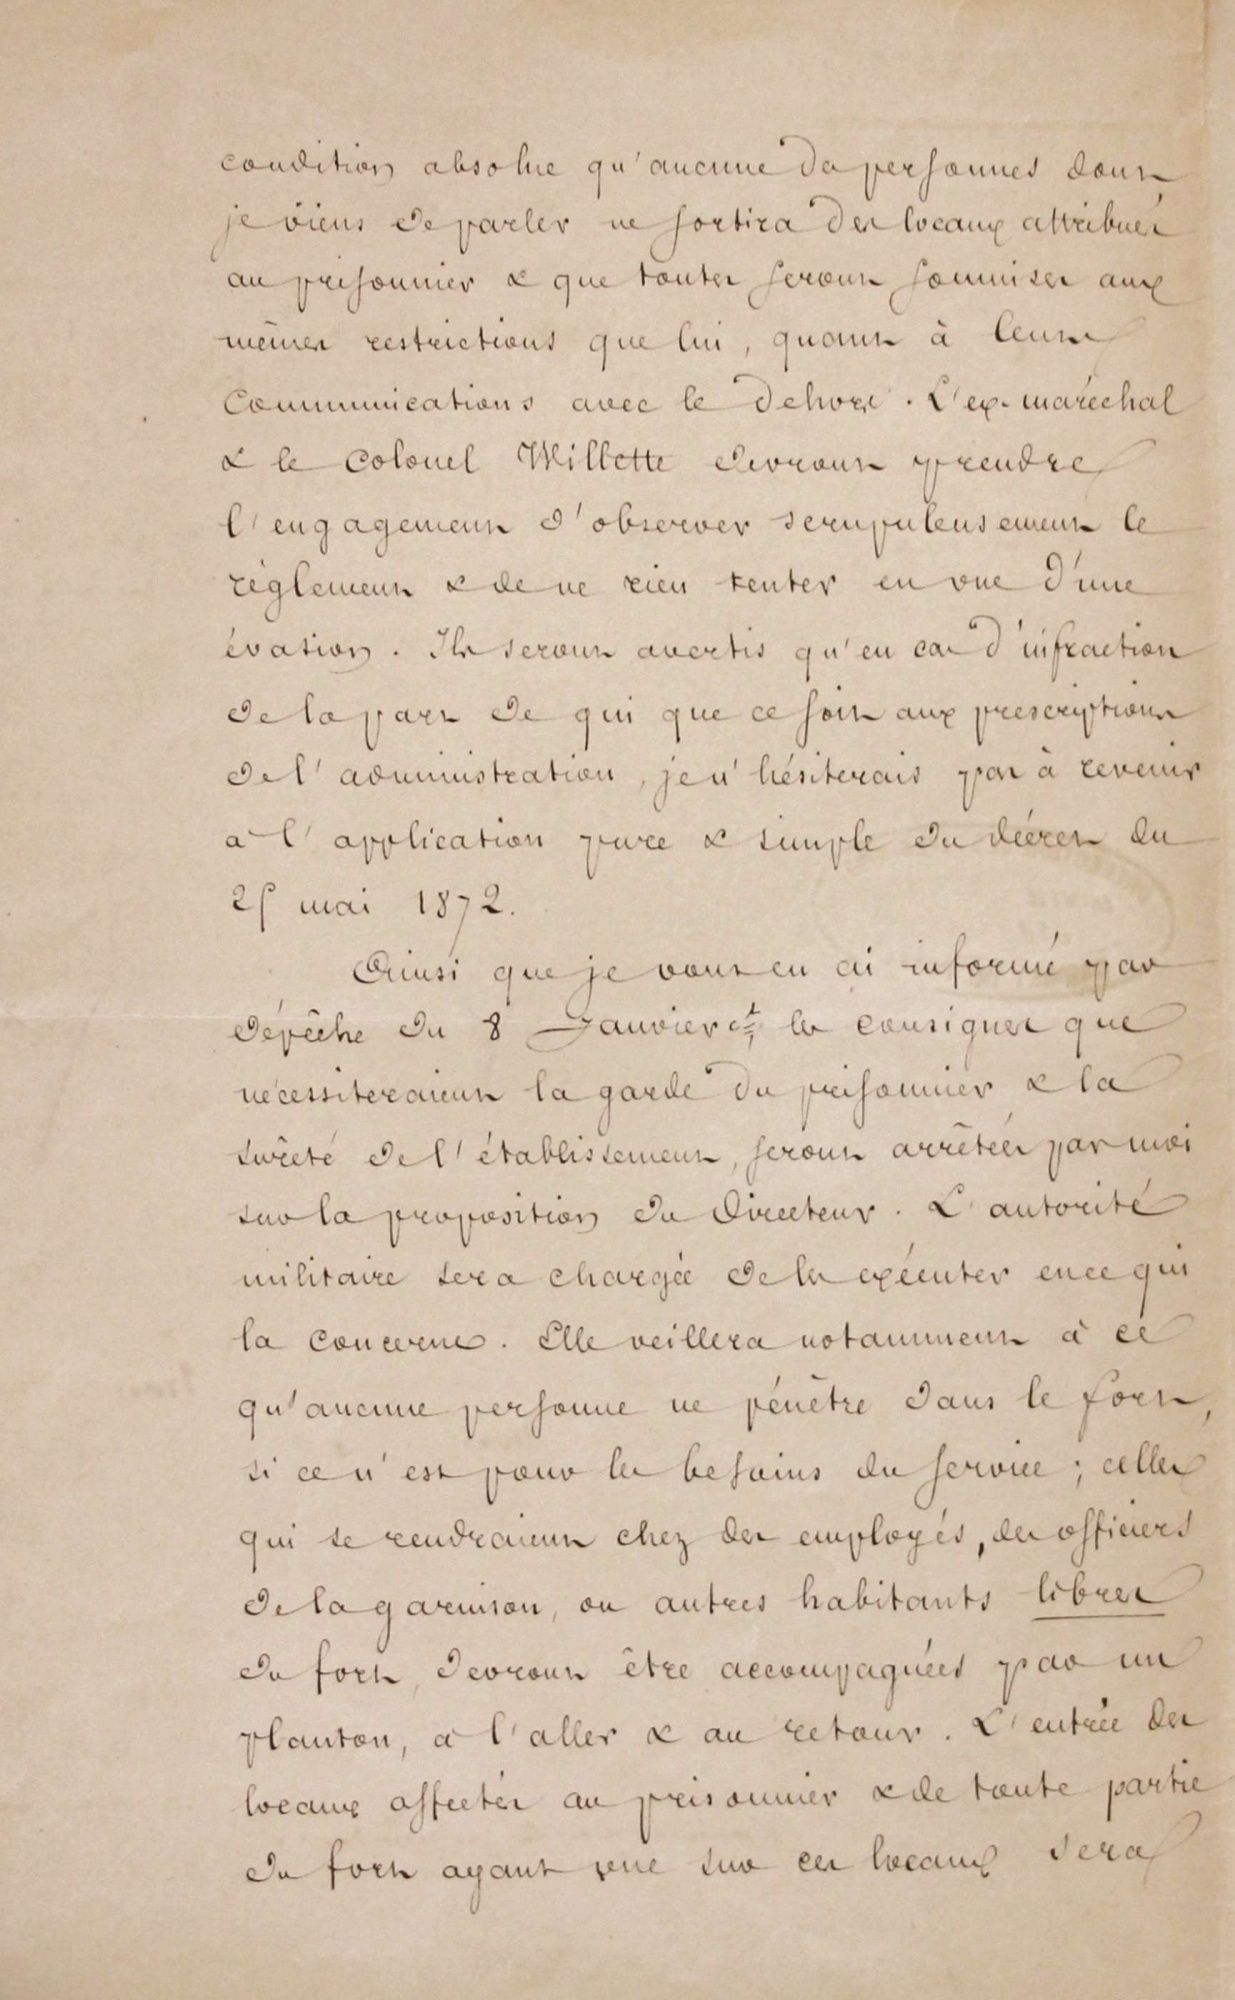 condition absolue qu'aucune des personnes dont
je viens de parler ne sortira des locaux attribués
au prisonnier & que toutes seront soumises aux
mêmes restrictions que lui, quant à leurs
communications avec le dehors. L'ex-maréchal
& le Colonel Willette devront prendre
l'engagement d'observer scrupuleusement le
réglement & de ne rien tenter en vue d'une
évasion. Ils seront avertis qu'en cas d'infraction
de la part de qui que ce soit aux prescriptions
de l'administration, je n'hésiterais pas à revenir
a l'application pure & simple du décret du
25 mai 1872.
Ainsi que je vous en ai informé par
dépêche du 8 Janvier ct les consignes que
nécessiteraient la garde du prisonnier & la
sureté de l'établissement, seront arrêtées par moi
sur la proposition du Directeur. L'autorité
militaire sera chargée de les exécuter en ce qui
la concerne. Elle veillera notamment à ce
qu'aucune personne ne pénêtre dans le fort,
si ce n'est pour les besoins du service; celles
qui se rendraient chez des employés, des officiers
de la garnison, ou autres habitants libres
du fort, devront être accompagnées par un
planton, a l'aller & au retour. L'entrée des
locaux affectés au prisonnier & de toute partie
du fort ayant vue sur ces locaux sera